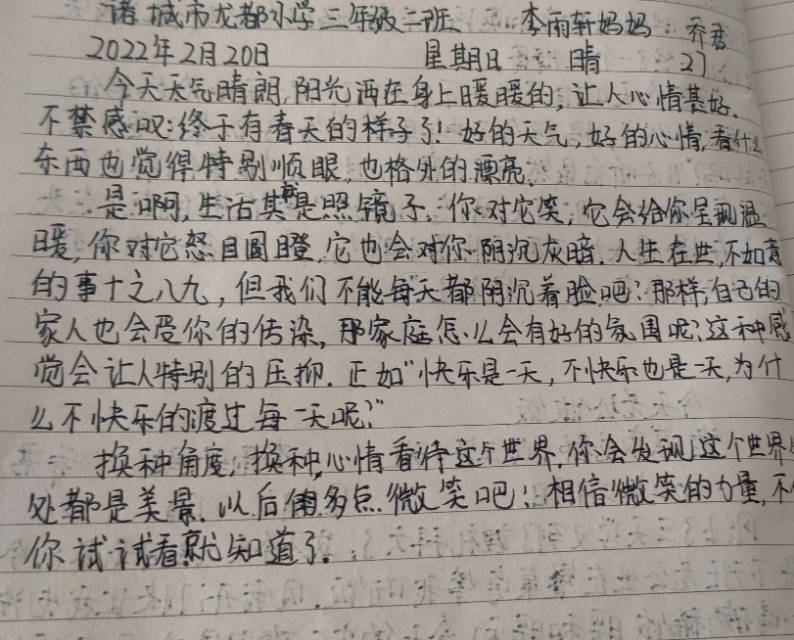 诸城市龙都小学三年级二班 李雨轩妈妈 乔君
2022年2月20日 星期日 晴 27
今天天气晴朗,阳光洒在身上暖暖的,让人心情甚好.
不禁感叹:终于有春天的样子了!好的天气,好的心情,看什么
东西也觉得特别顺眼,也格外的漂亮.
是啊,生活其就是照镜子,你对它笑,它会给你呈现温
暖,你对它怒目圆瞪,它也会对你阴沉灰暗.人生在世,不如意
的事十之八九,但我们不能每天都阴沉着脸吧?那样,自己的
家人也会受你的传染,那家庭怎么会有好的氛围呢?这种感
觉会让人特别的压抑.正如"快乐是一天,不快乐也是一天,为什
么不快乐的渡过每一天呢?"
换种角度,换种心情看待这个世界,你会发现这个世界
处都是美景.以后多点微笑吧!相信微笑的力量,不
你试试看就知道了.